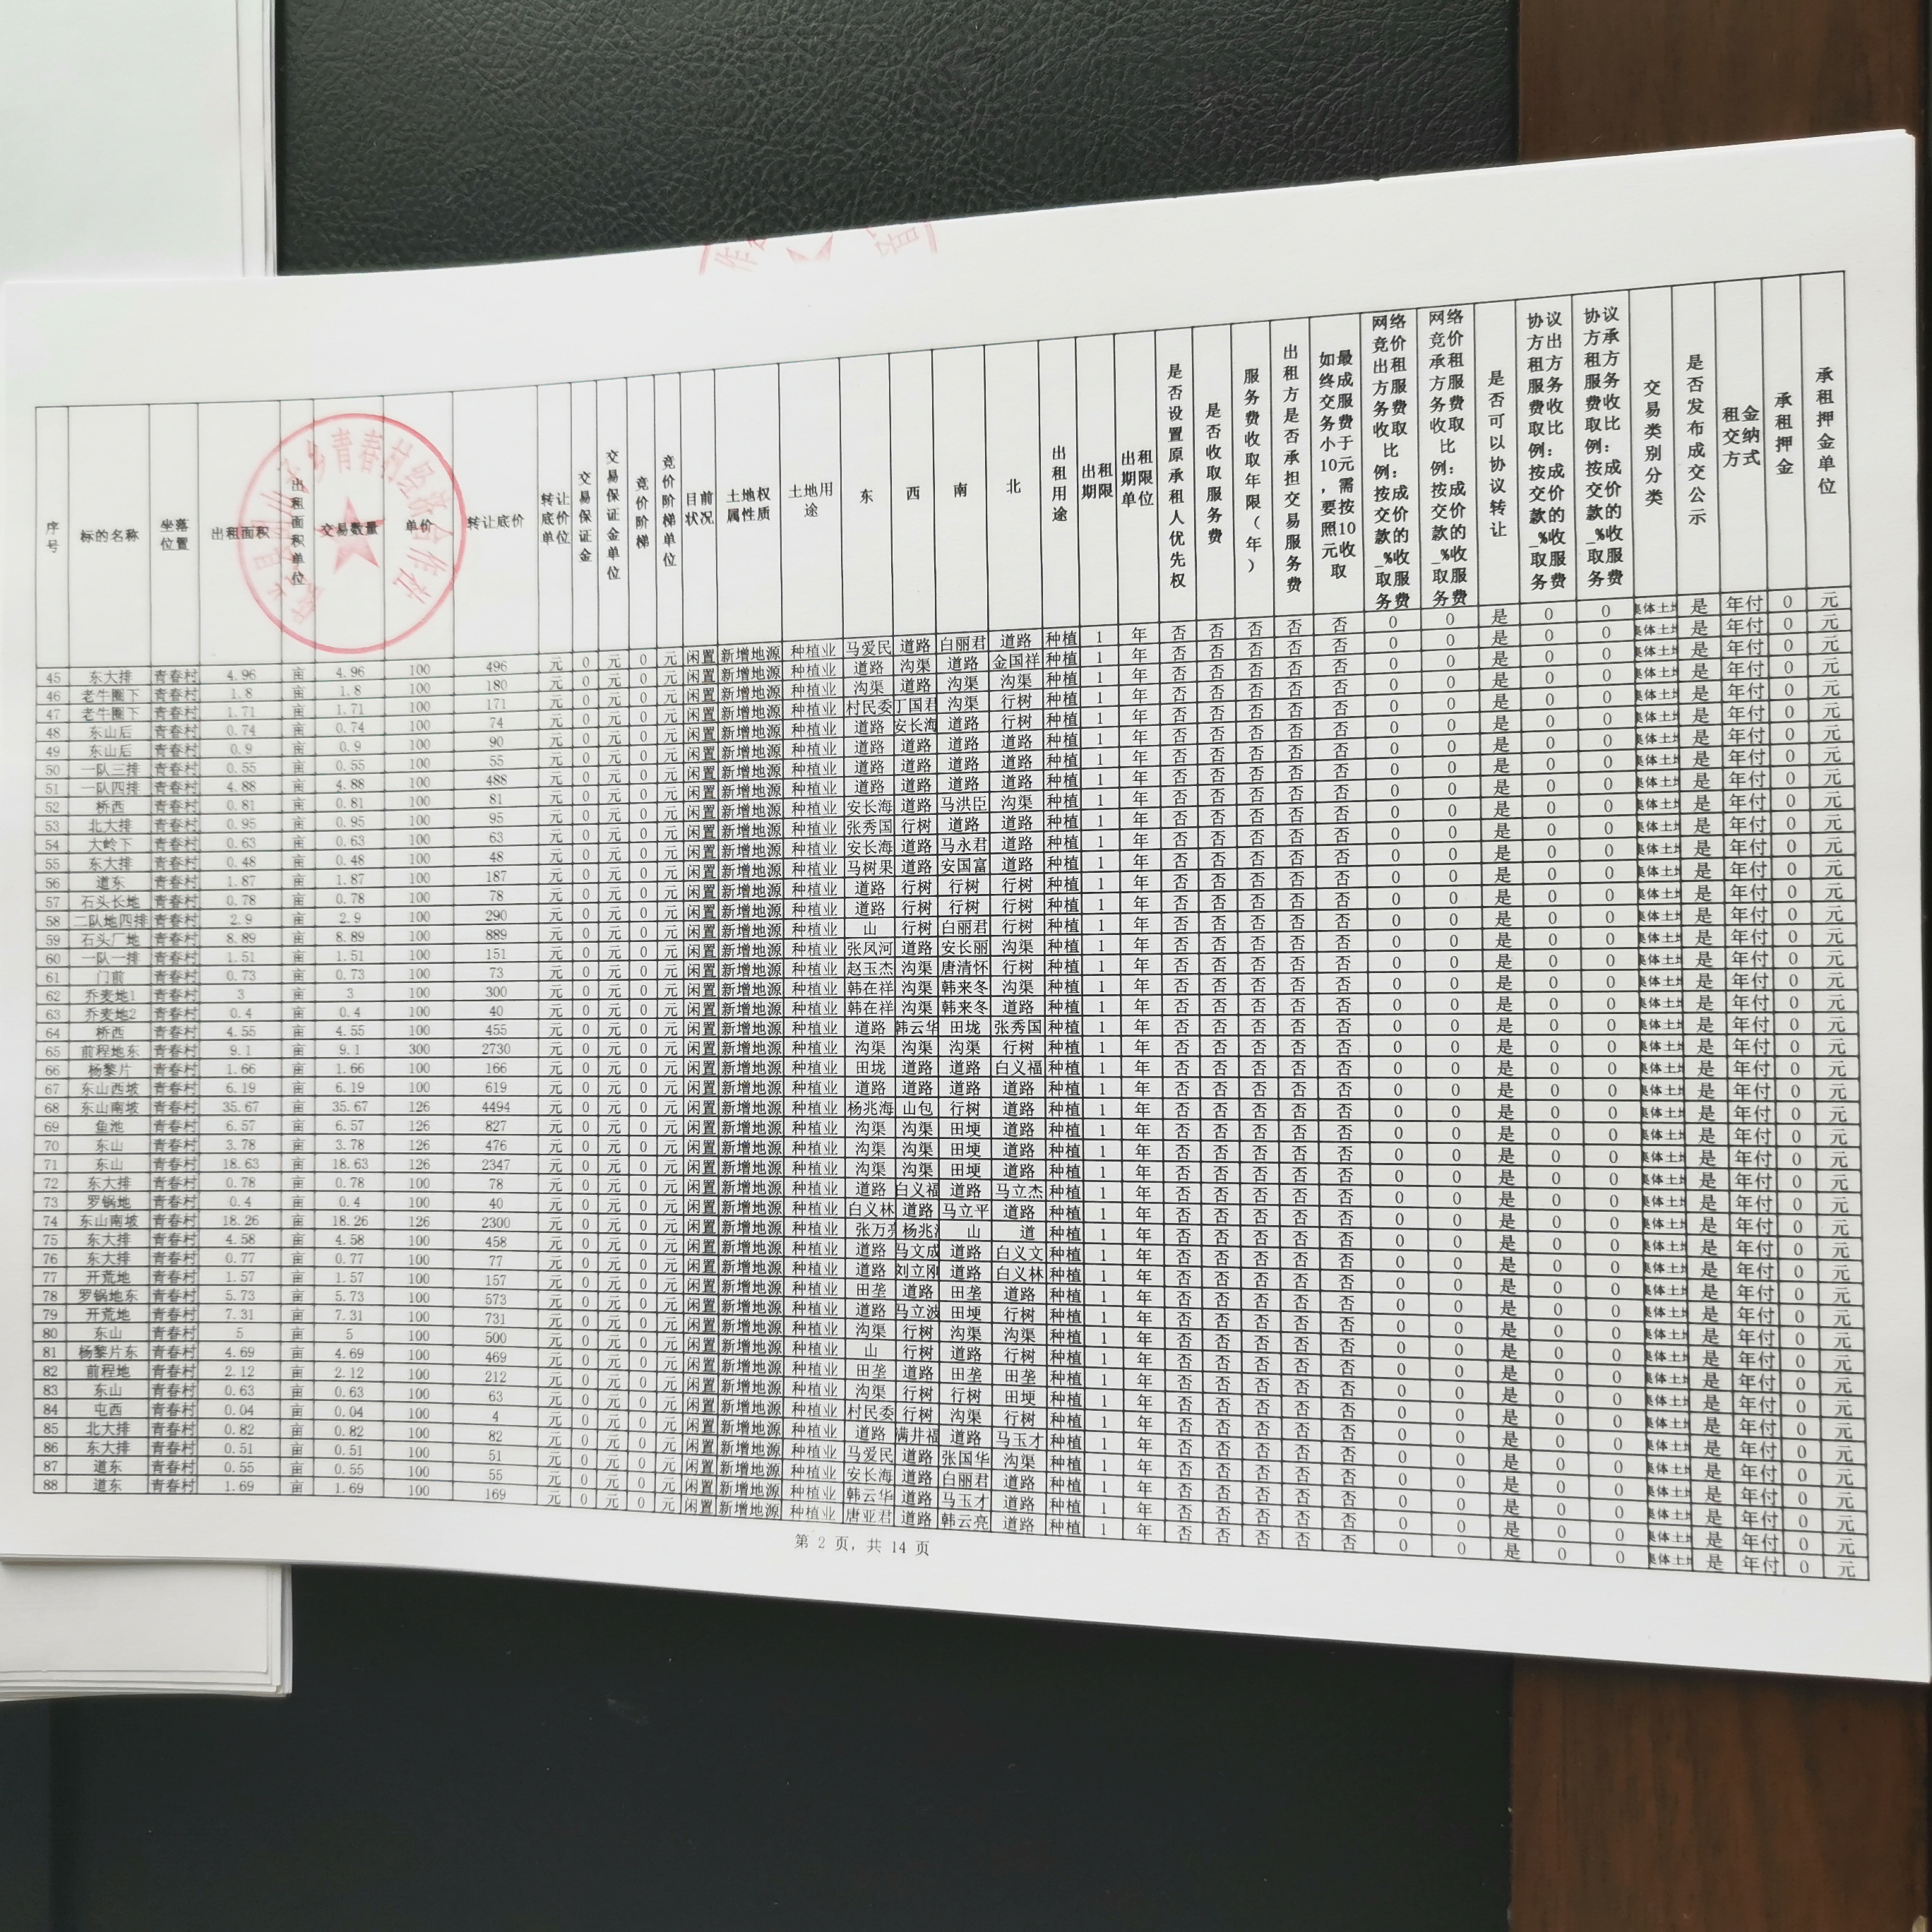 序号 标的名称 坐落位置 出租面积 出租面积单位 交易数量 单价 转让底价 转让底价单位 交易保证金 交易保证金单位 竞价阶梯 竞价阶梯单位 目前状况 土地权属性质 土地用途 东 西 南 北 出租用途 出租期限 出租期限单位 是否设置原承租人优先权 是否收取服务费 服务费收取年限（年） 出租方是否承担交易服务费 如最终成交服务费小于10元，需要按照10元收取 网络竞价出租方服务费收取比例：按成交价款的_%收取服务费 网络竞价承租方服务费收取比例：按成交价款的_%收取服务费 是否可以协议转让 协议出租方服务费收取比例：按成交价款的_%收取服务费 协议承租方服务费收取比例：按成交价款的_%收取服务费 交易类别分类 是否发布成交公示 租金交纳方式 承租押金 承租押金单位
45 东大排 青春村 4.96 亩 4.96 100 496 元 0 元 0 元 闲置 新增地源 种植业 马爱民 道路 白丽君 道路 种植 1 年 否 否 否 否 否 0 0 是 0 0 集体土地 是 年付 0 元
46 老牛圈下 青春村 1.8 亩 1.8 100 180 元 0 元 0 元 闲置 新增地源 种植业 道路 沟渠 道路 金国祥 种植 1 年 否 否 否 否 否 0 0 是 0 0 集体土地 是 年付 0 元
47 老牛圈下 青春村 1.71 亩 1.71 100 171 元 0 元 0 元 闲置 新增地源 种植业 沟渠 道路 沟渠 沟渠 种植 1 年 否 否 否 否 否 0 0 是 0 0 集体土地 是 年付 0 元
48 东山后 青春村 0.74 亩 0.74 100 74 元 0 元 0 元 闲置 新增地源 种植业 村民委 丁国君 沟渠 行树 种植 1 年 否 否 否 否 否 0 0 是 0 0 集体土地 是 年付 0 元
49 东山后 青春村 0.9 亩 0.9 100 90 元 0 元 0 元 闲置 新增地源 种植业 道路 安长海 道路 行树 种植 1 年 否 否 否 否 否 0 0 是 0 0 集体土地 是 年付 0 元
50 一队三排 青春村 0.55 亩 0.55 100 55 元 0 元 0 元 闲置 新增地源 种植业 道路 道路 道路 道路 种植 1 年 否 否 否 否 否 0 0 是 0 0 集体土地 是 年付 0 元
51 一队四排 青春村 4.88 亩 4.88 100 488 元 0 元 0 元 闲置 新增地源 种植业 道路 道路 道路 道路 种植 1 年 否 否 否 否 否 0 0 是 0 0 集体土地 是 年付 0 元
52 桥西 青春村 0.81 亩 0.81 100 81 元 0 元 0 元 闲置 新增地源 种植业 道路 道路 道路 道路 种植 1 年 否 否 否 否 否 0 0 是 0 0 集体土地 是 年付 0 元
53 北大排 青春村 0.95 亩 0.95 100 95 元 0 元 0 元 闲置 新增地源 种植业 安长海 道路 马洪臣 沟渠 种植 1 年 否 否 否 否 否 0 0 是 0 0 集体土地 是 年付 0 元
54 大岭下 青春村 0.63 亩 0.63 100 63 元 0 元 0 元 闲置 新增地源 种植业 张秀国 行树 道路 道路 种植 1 年 否 否 否 否 否 0 0 是 0 0 集体土地 是 年付 0 元
55 东大排 青春村 0.48 亩 0.48 100 48 元 0 元 0 元 闲置 新增地源 种植业 安长海 道路 马永君 道路 种植 1 年 否 否 否 否 否 0 0 是 0 0 集体土地 是 年付 0 元
56 道东 青春村 1.87 亩 1.87 100 187 元 0 元 0 元 闲置 新增地源 种植业 马树果 道路 安国富 道路 种植 1 年 否 否 否 否 否 0 0 是 0 0 集体土地 是 年付 0 元
57 石头长地 青春村 0.78 亩 0.78 100 78 元 0 元 0 元 闲置 新增地源 种植业 道路 行树 行树 行树 种植 1 年 否 否 否 否 否 0 0 是 0 0 集体土地 是 年付 0 元
58 二队地四排 青春村 2.9 亩 2.9 100 290 元 0 元 0 元 闲置 新增地源 种植业 道路 行树 行树 行树 种植 1 年 否 否 否 否 否 0 0 是 0 0 集体土地 是 年付 0 元
59 石头厂地 青春村 8.89 亩 8.89 100 889 元 0 元 0 元 闲置 新增地源 种植业 山 行树 白丽君 行树 种植 1 年 否 否 否 否 否 0 0 是 0 0 集体土地 是 年付 0 元
60 一队一排 青春村 1.51 亩 1.51 100 151 元 0 元 0 元 闲置 新增地源 种植业 张凤河 道路 安长丽 沟渠 种植 1 年 否 否 否 否 否 0 0 是 0 0 集体土地 是 年付 0 元
61 门前 青春村 0.73 亩 0.73 100 73 元 0 元 0 元 闲置 新增地源 种植业 赵玉杰 沟渠 唐清怀 行树 种植 1 年 否 否 否 否 否 0 0 是 0 0 集体土地 是 年付 0 元
62 乔麦地1 青春村 3 亩 3 100 300 元 0 元 0 元 闲置 新增地源 种植业 韩在祥 沟渠 韩来冬 沟渠 种植 1 年 否 否 否 否 否 0 0 是 0 0 集体土地 是 年付 0 元
63 乔麦地2 青春村 0.4 亩 0.4 100 40 元 0 元 0 元 闲置 新增地源 种植业 韩在祥 沟渠 韩来冬 道路 种植 1 年 否 否 否 否 否 0 0 是 0 0 集体土地 是 年付 0 元
64 桥西 青春村 4.55 亩 4.55 100 455 元 0 元 0 元 闲置 新增地源 种植业 道路 韩云华 田垅 张秀国 种植 1 年 否 否 否 否 否 0 0 是 0 0 集体土地 是 年付 0 元
65 前程地东 青春村 9.1 亩 9.1 300 2730 元 0 元 0 元 闲置 新增地源 种植业 沟渠 沟渠 沟渠 行树 种植 1 年 否 否 否 否 否 0 0 是 0 0 集体土地 是 年付 0 元
66 杨黎片 青春村 1.66 亩 1.66 100 166 元 0 元 0 元 闲置 新增地源 种植业 田垅 道路 道路 白义福 种植 1 年 否 否 否 否 否 0 0 是 0 0 集体土地 是 年付 0 元
67 东山西坡 青春村 6.19 亩 6.19 100 619 元 0 元 0 元 闲置 新增地源 种植业 道路 道路 道路 道路 种植 1 年 否 否 否 否 否 0 0 是 0 0 集体土地 是 年付 0 元
68 东山南坡 青春村 35.67 亩 35.67 126 4494 元 0 元 0 元 闲置 新增地源 种植业 杨兆海 山包 行树 道路 种植 1 年 否 否 否 否 否 0 0 是 0 0 集体土地 是 年付 0 元
69 鱼池 青春村 6.57 亩 6.57 126 827 元 0 元 0 元 闲置 新增地源 种植业 沟渠 沟渠 田埂 道路 种植 1 年 否 否 否 否 否 0 0 是 0 0 集体土地 是 年付 0 元
70 东山 青春村 3.78 亩 3.78 126 476 元 0 元 0 元 闲置 新增地源 种植业 沟渠 沟渠 田埂 道路 种植 1 年 否 否 否 否 否 0 0 是 0 0 集体土地 是 年付 0 元
71 东山 青春村 18.63 亩 18.63 126 2347 元 0 元 0 元 闲置 新增地源 种植业 沟渠 沟渠 田埂 道路 种植 1 年 否 否 否 否 否 0 0 是 0 0 集体土地 是 年付 0 元
72 东大排 青春村 0.78 亩 0.78 100 78 元 0 元 0 元 闲置 新增地源 种植业 道路 白义福 道路 马立杰 种植 1 年 否 否 否 否 否 0 0 是 0 0 集体土地 是 年付 0 元
73 罗锅地 青春村 0.4 亩 0.4 100 40 元 0 元 0 元 闲置 新增地源 种植业 白义林 道路 马立平 道路 种植 1 年 否 否 否 否 否 0 0 是 0 0 集体土地 是 年付 0 元
74 东山南坡 青春村 18.26 亩 18.26 126 2300 元 0 元 0 元 闲置 新增地源 种植业 张万亮 杨兆海 山 道 种植 1 年 否 否 否 否 否 0 0 是 0 0 集体土地 是 年付 0 元
75 东大排 青春村 4.58 亩 4.58 100 458 元 0 元 0 元 闲置 新增地源 种植业 道路 马文成 道路 白义文 种植 1 年 否 否 否 否 否 0 0 是 0 0 集体土地 是 年付 0 元
76 东大排 青春村 0.77 亩 0.77 100 77 元 0 元 0 元 闲置 新增地源 种植业 道路 刘立刚 道路 白义林 种植 1 年 否 否 否 否 否 0 0 是 0 0 集体土地 是 年付 0 元
77 开荒地 青春村 1.57 亩 1.57 100 157 元 0 元 0 元 闲置 新增地源 种植业 田垄 道路 田垄 道路 种植 1 年 否 否 否 否 否 0 0 是 0 0 集体土地 是 年付 0 元
78 罗锅地东 青春村 5.73 亩 5.73 100 573 元 0 元 0 元 闲置 新增地源 种植业 道路 马立波 田埂 行树 种植 1 年 否 否 否 否 否 0 0 是 0 0 集体土地 是 年付 0 元
79 开荒地 青春村 7.31 亩 7.31 100 731 元 0 元 0 元 闲置 新增地源 种植业 沟渠 行树 沟渠 沟渠 种植 1 年 否 否 否 否 否 0 0 是 0 0 集体土地 是 年付 0 元
80 东山 青春村 5 亩 5 100 500 元 0 元 0 元 闲置 新增地源 种植业 山 行树 道路 行树 种植 1 年 否 否 否 否 否 0 0 是 0 0 集体土地 是 年付 0 元
81 杨黎片东 青春村 4.69 亩 4.69 100 469 元 0 元 0 元 闲置 新增地源 种植业 田垄 道路 田垄 田垄 种植 1 年 否 否 否 否 否 0 0 是 0 0 集体土地 是 年付 0 元
82 前程地 青春村 2.12 亩 2.12 100 212 元 0 元 0 元 闲置 新增地源 种植业 沟渠 行树 行树 田埂 种植 1 年 否 否 否 否 否 0 0 是 0 0 集体土地 是 年付 0 元
83 东山 青春村 0.63 亩 0.63 100 63 元 0 元 0 元 闲置 新增地源 种植业 村民委 行树 沟渠 行树 种植 1 年 否 否 否 否 否 0 0 是 0 0 集体土地 是 年付 0 元
84 屯西 青春村 0.04 亩 0.04 100 4 元 0 元 0 元 闲置 新增地源 种植业 道路 满井福 道路 马玉才 种植 1 年 否 否 否 否 否 0 0 是 0 0 集体土地 是 年付 0 元
85 北大排 青春村 0.82 亩 0.82 100 82 元 0 元 0 元 闲置 新增地源 种植业 马爱民 道路 张国华 沟渠 种植 1 年 否 否 否 否 否 0 0 是 0 0 集体土地 是 年付 0 元
86 东大排 青春村 0.51 亩 0.51 100 51 元 0 元 0 元 闲置 新增地源 种植业 安长海 道路 白丽君 道路 种植 1 年 否 否 否 否 否 0 0 是 0 0 集体土地 是 年付 0 元
87 道东 青春村 0.55 亩 0.55 100 55 元 0 元 0 元 闲置 新增地源 种植业 韩云华 道路 马玉才 道路 种植 1 年 否 否 否 否 否 0 0 是 0 0 集体土地 是 年付 0 元
88 道东 青春村 1.69 亩 1.69 100 169 元 0 元 0 元 闲置 新增地源 种植业 唐亚君 道路 韩云亮 道路 种植 1 年 否 否 否 否 否 0 0 是 0 0 集体土地 是 年付 0 元
第 2 页，共 14 页
乡青春村经济合作社